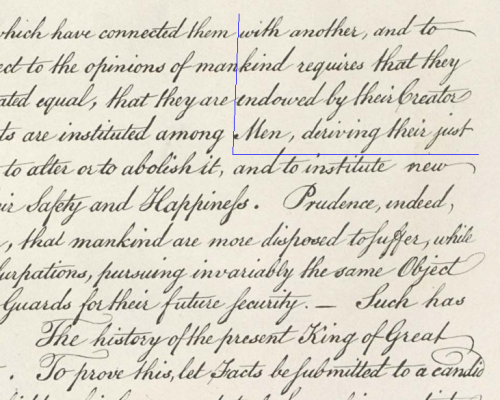 which have connected them with another, and to
ect to the opinions of mankind requires that they
ated equal, that they are endowed by their Creator
ts are instituted among Men, deriving their just
to alter or to abolish it, and to institute new
ir Safety and Happineſs. Prudence, indeed,
, that mankind are more disposed to suffer, while
surpations, pursuing invariably the same Object
Guards for their future security. — Such has
The history of the present King of Great
. To prove this, let Facts be submitted to a candid